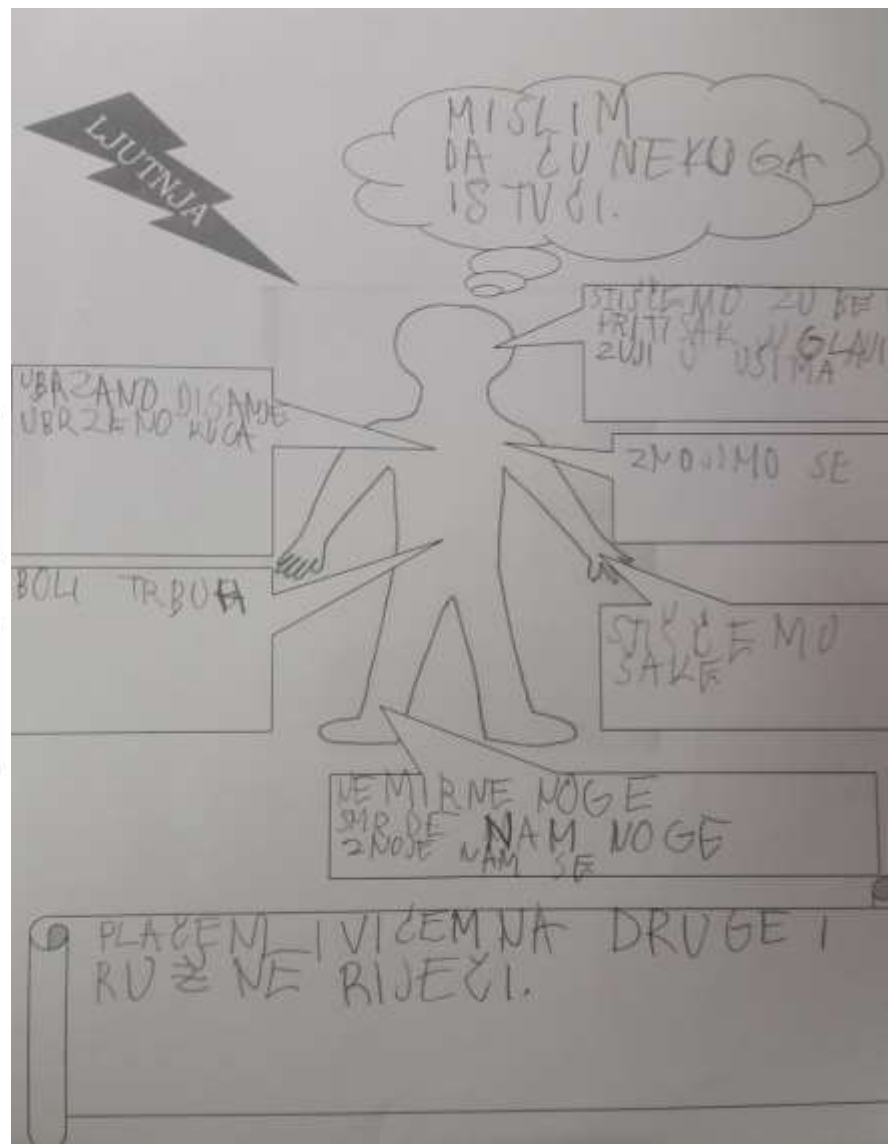 LJUTNJA
MISLIM
DA ĆU NEKUGA
ISTUĆI.
STIŠĆEMO ZUBE
PRITISAK U GLAVI
ZUJI U UŠIMA
UBRZANO DISANJE
UBRZENO KUCA
ZNOJIMO SE
BOLI TRBUH
STIČĆEMO
ŠAKE
NEMIRNE NOGE
SMRDE NAM NOGE
ZNOJE NAM SE
PLAČEM I VIČEM NA DRUGE I
RUŽNE RIJEČI.